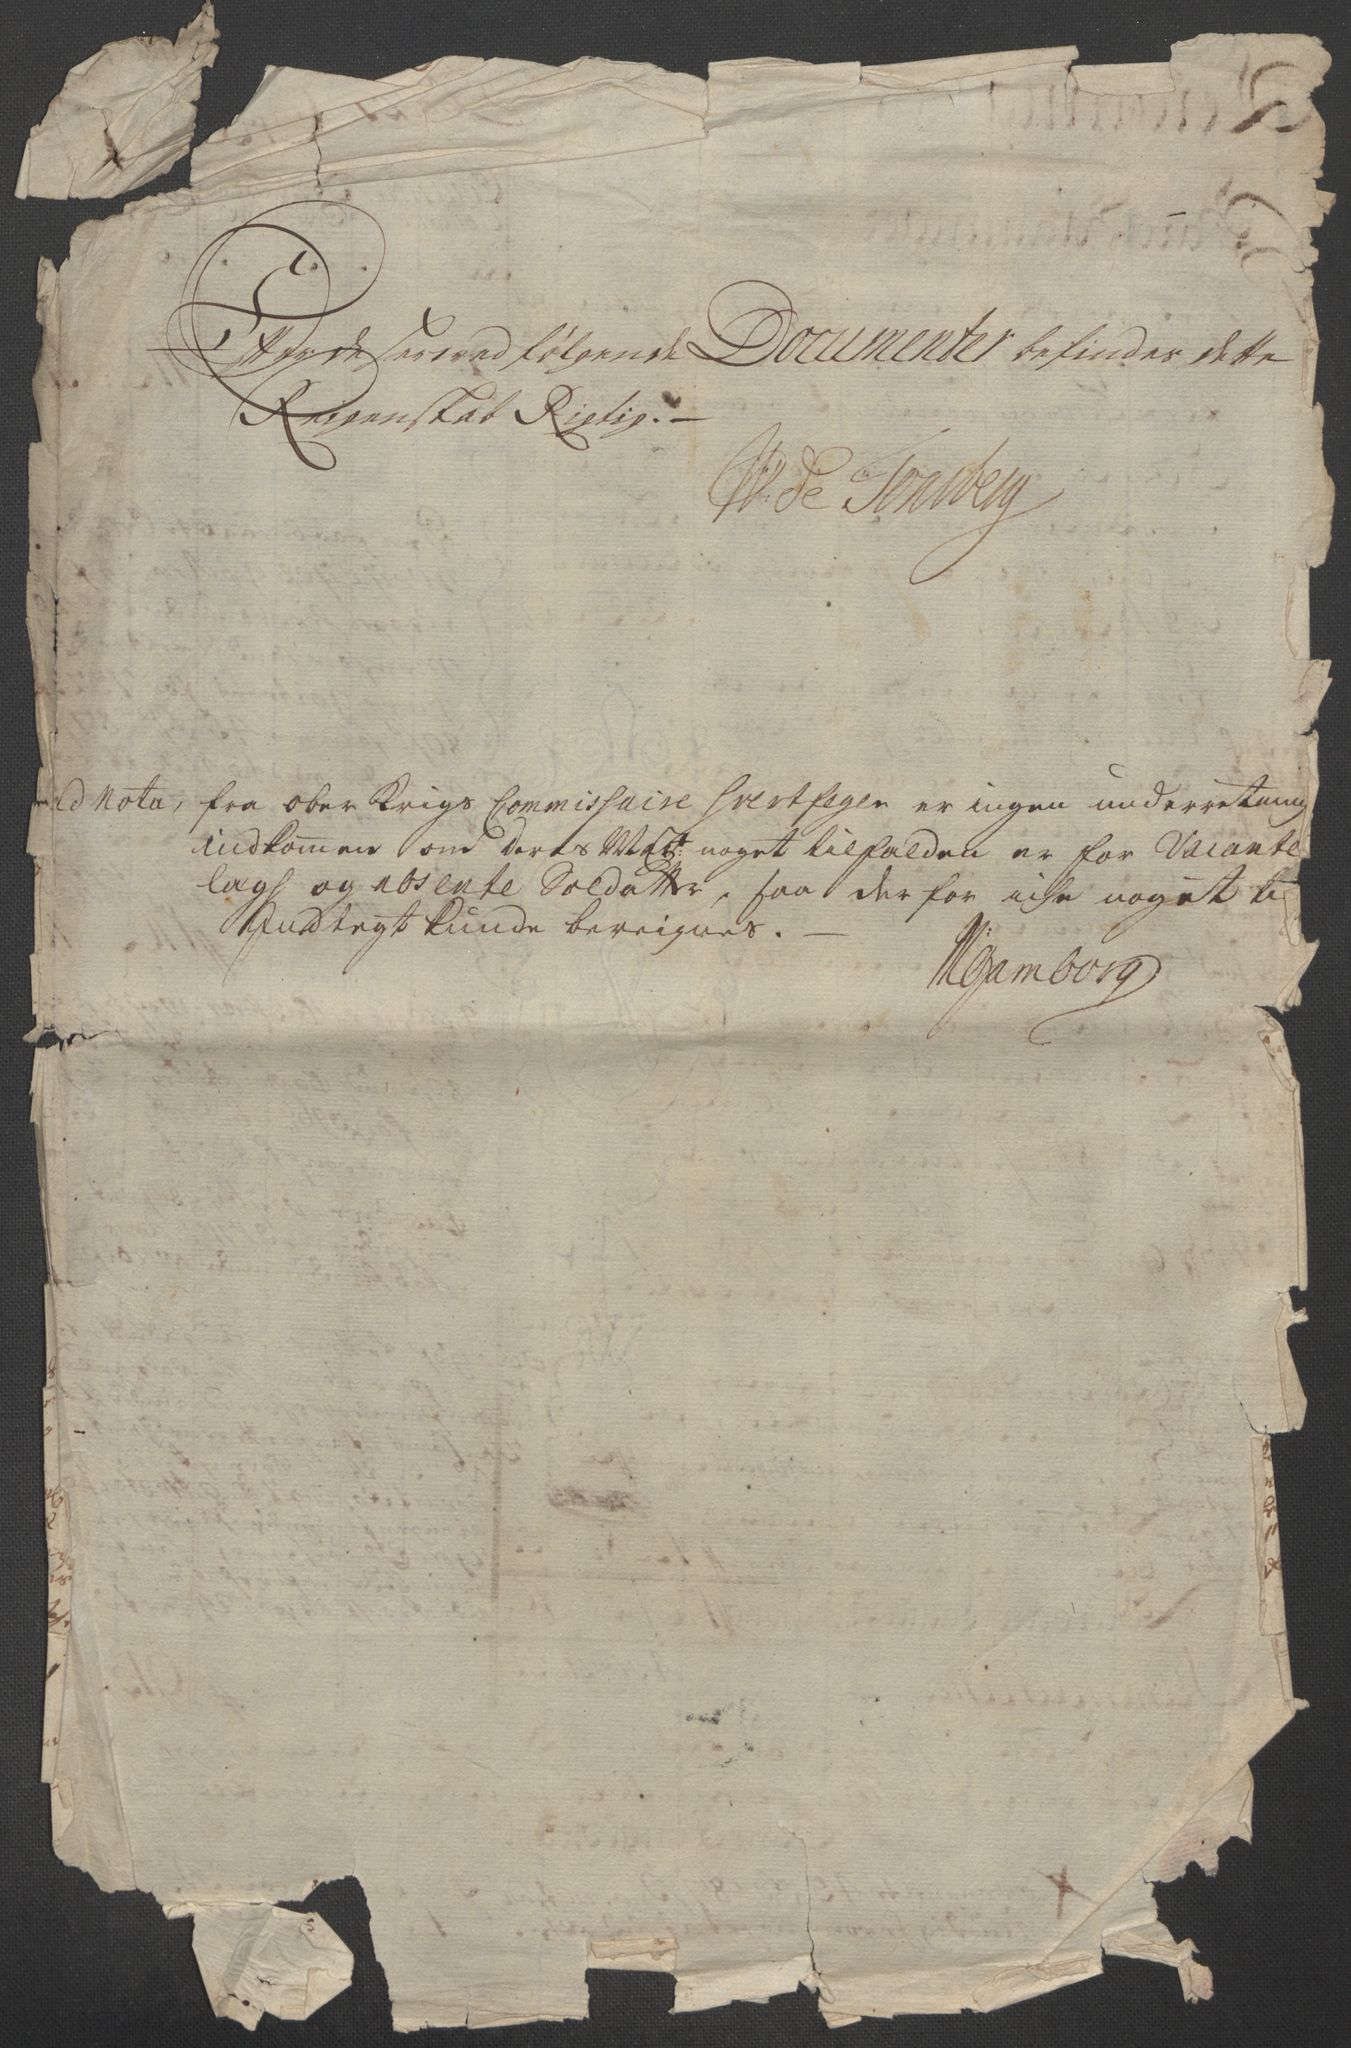 Efter de herved følgende Documenter befindes dette
Reigenskab Rigtig. —
W. de Tonsberg
ad Nota, fra ober Krigs Commissaire Svertfeger er ingen underretning
indkomen om Deres Maÿt: noget tilfalden er for Vacante
lægs og absente Soldatter, saa derfor iche noget til
Indtegt kunde bereignes. —
N: Gamborg